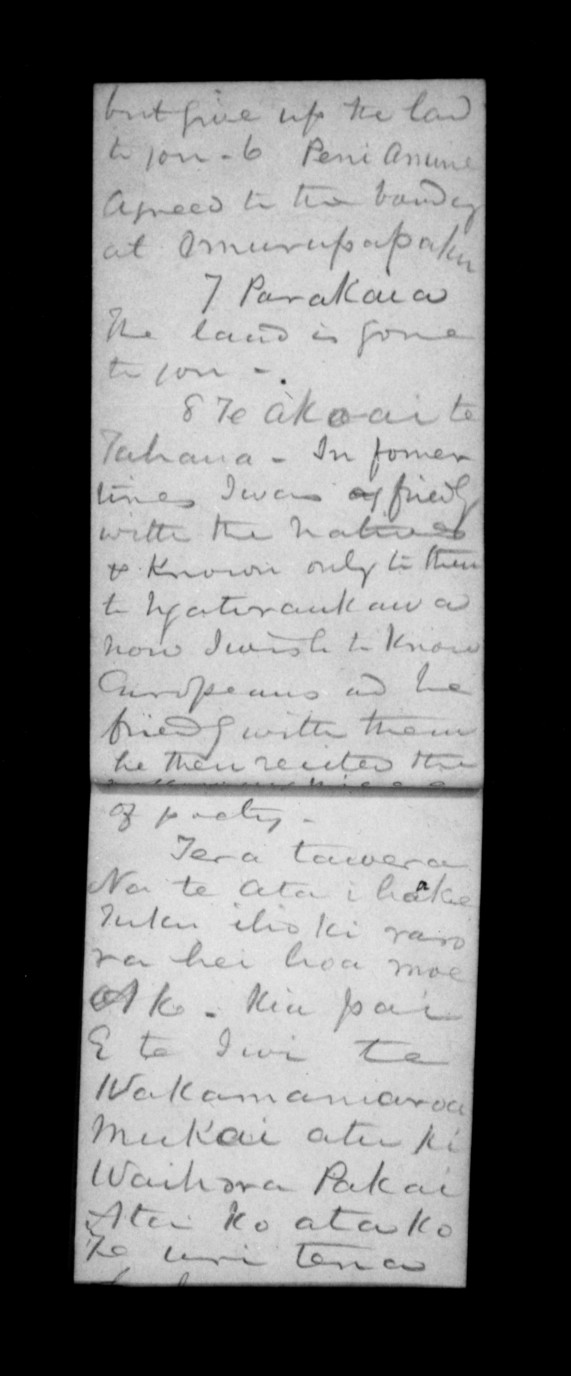 but give up the land
to you - 6 Peni Amine
Agreed to the bounday
at Omurupapaku
7 Parakaia
The land is gone
to you -.
8 Te akoai te
Tahana - In fomer
times I was friendly
with the Natives
& Known only to them
to Ngatiraukawa
now I wish to Know
Europeans and be
friendly with them
he then recited the
of poetry -
Tera tawera
Na te ata i haake
Tuku iho ki raro
ra hei hoa moe
Ako - Kia pai
E te Iwi te
Wakamamaroa
Mukai atu ki
Waihora Pakai
Atai Ko ata Ko
Te uri tena